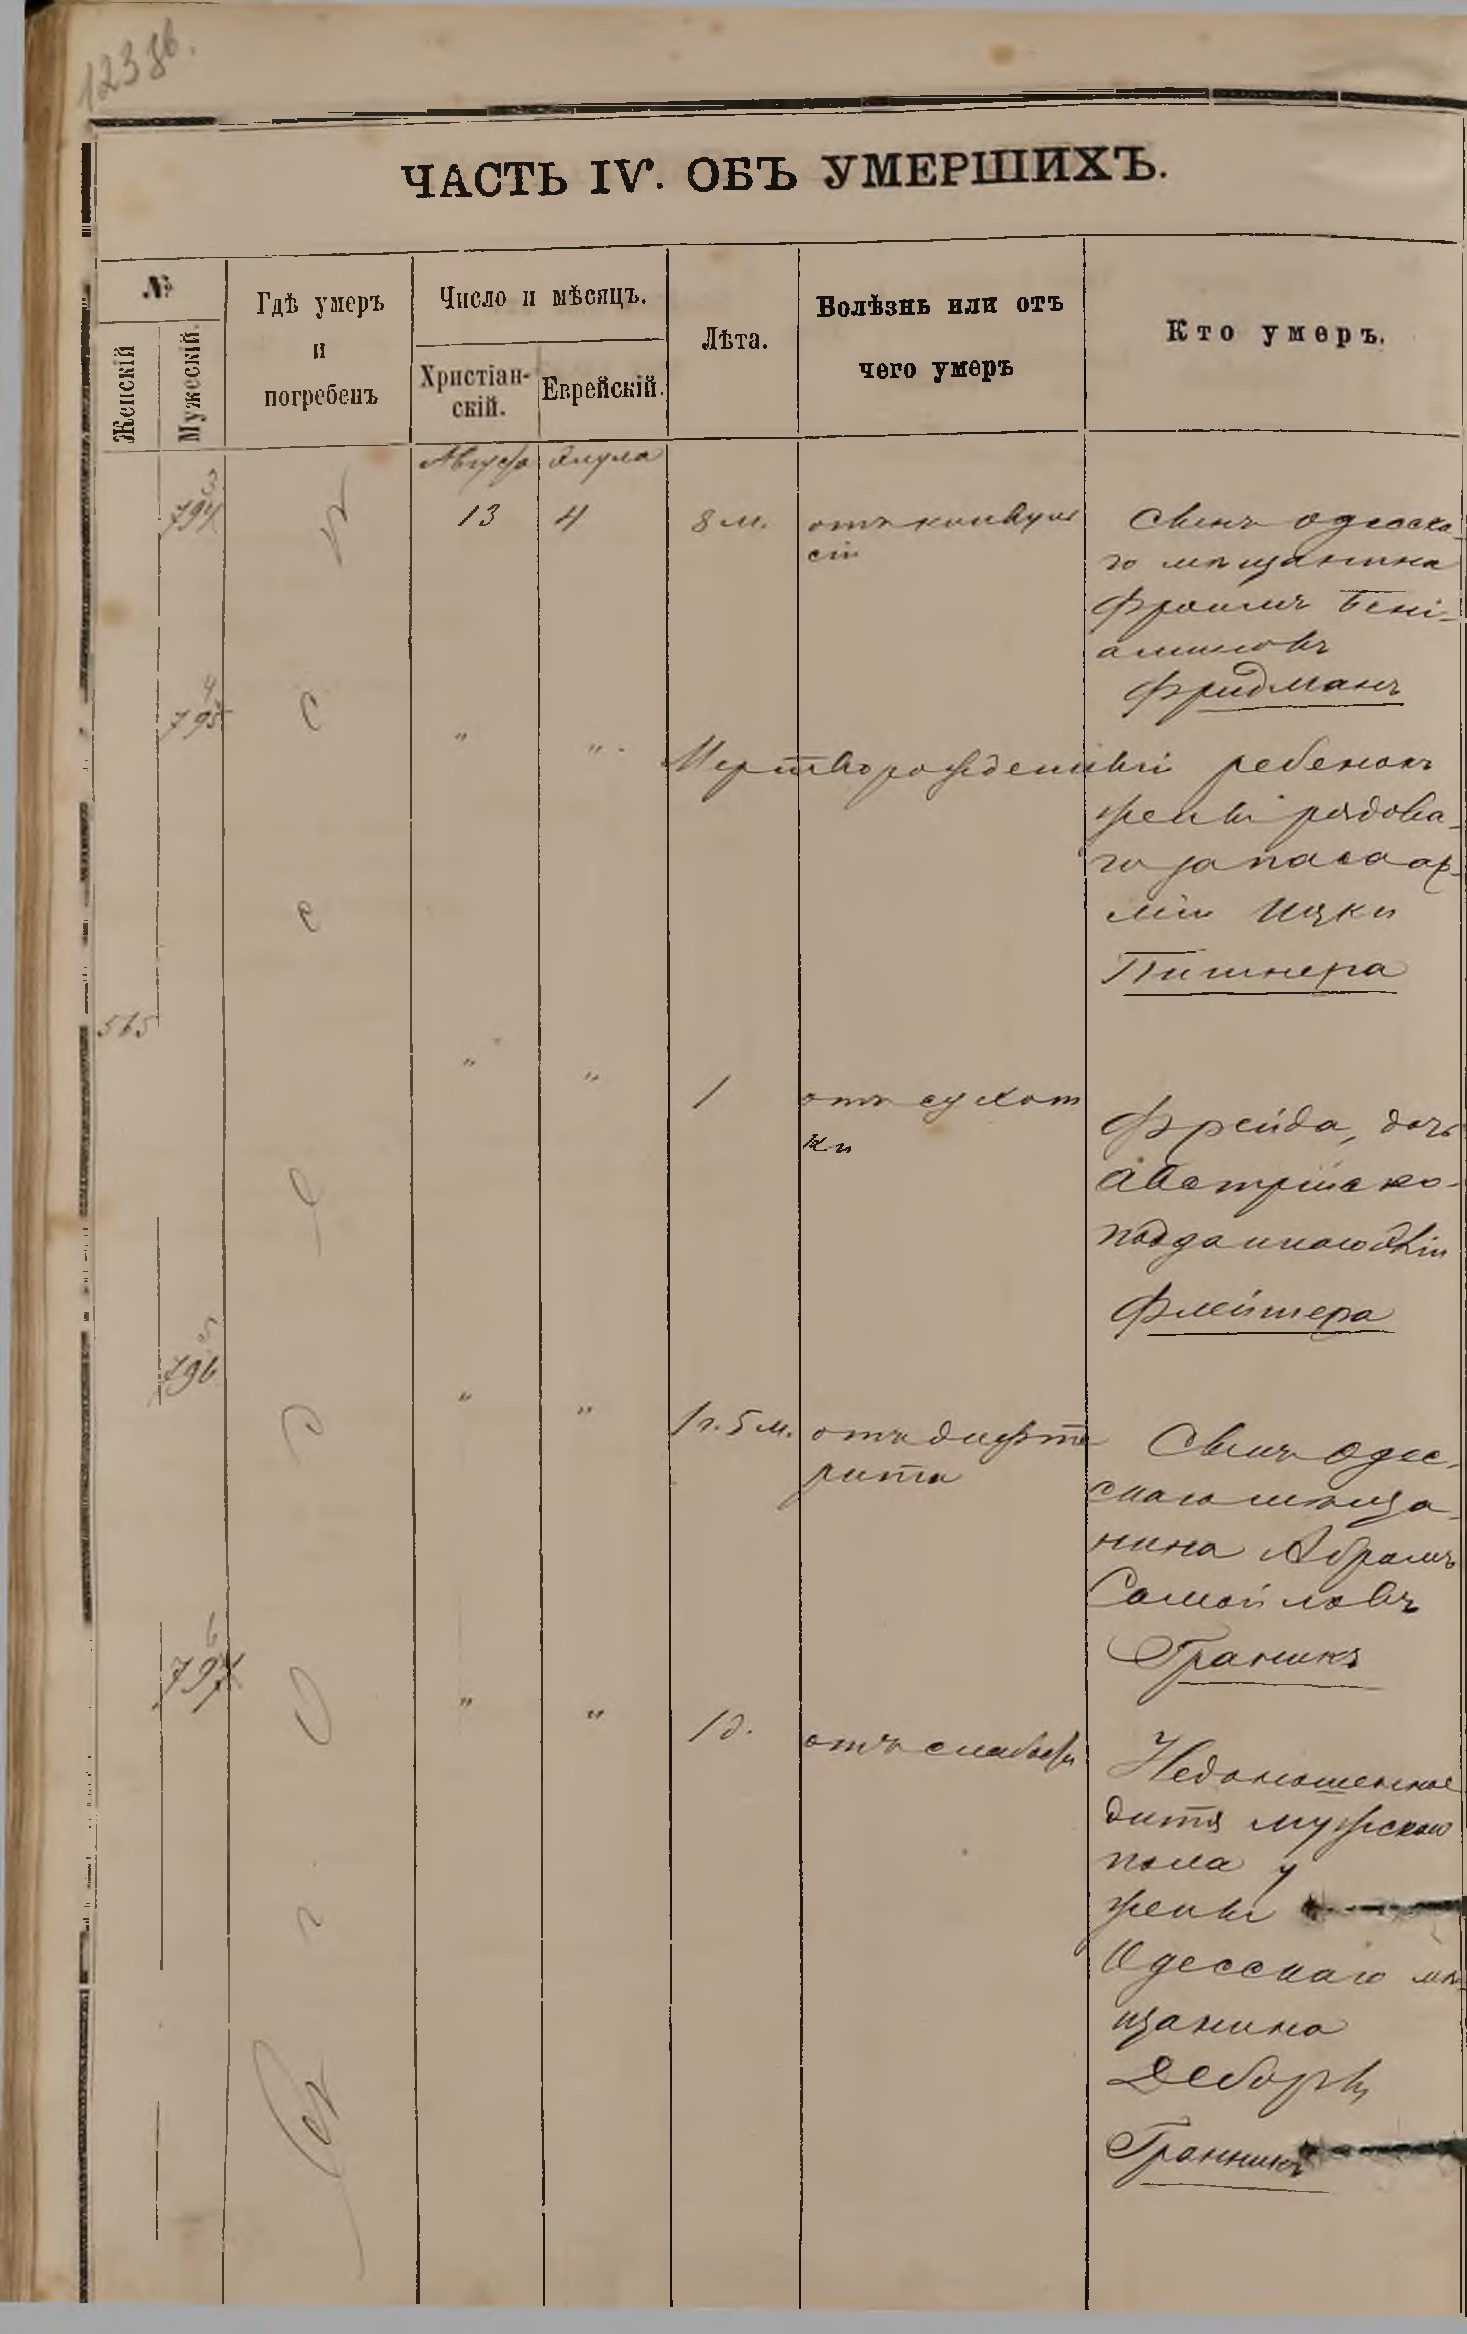 ЧАСТЬ IV. ОБЪ УМЕРШИХЪ.
№
Женскій
Мужескій.
Гдѣ умеръ
и
погребенъ
Число и мѣсяцъ.
Христіан-
скій.
Еврейскій.
Лѣта.
Болѣзнь или отъ
чего умеръ
Кто умеръ.
Августа Элула
3
794
13 4 8 м. отъ конвуль
сіи
Сынъ одесска-
го мѣщанина
Фроимъ Бені-
аминовъ
Фридманъ
4
795
" "
Мертворожденный ребенокъ
жены рядова-
го запаса ар-
міи Ицки
Питнера
565
" " 1 отъ сухот
ки
Фрейда, дочь
Австрійско-
подданного
Флейшера
5
796
" " 1 г. 5 м. отъ дифте
рита
Сынъ одес-
скаго мѣща-
нина Абрамъ
Самойловъ
Граникъ
6
797
" " 1 д. отъ слабости
Недоношенное
дитя мужскаго
пола у
жены
Одесскаго мѣ-
щанина
Деборы
Гранникъ
Одессѣ